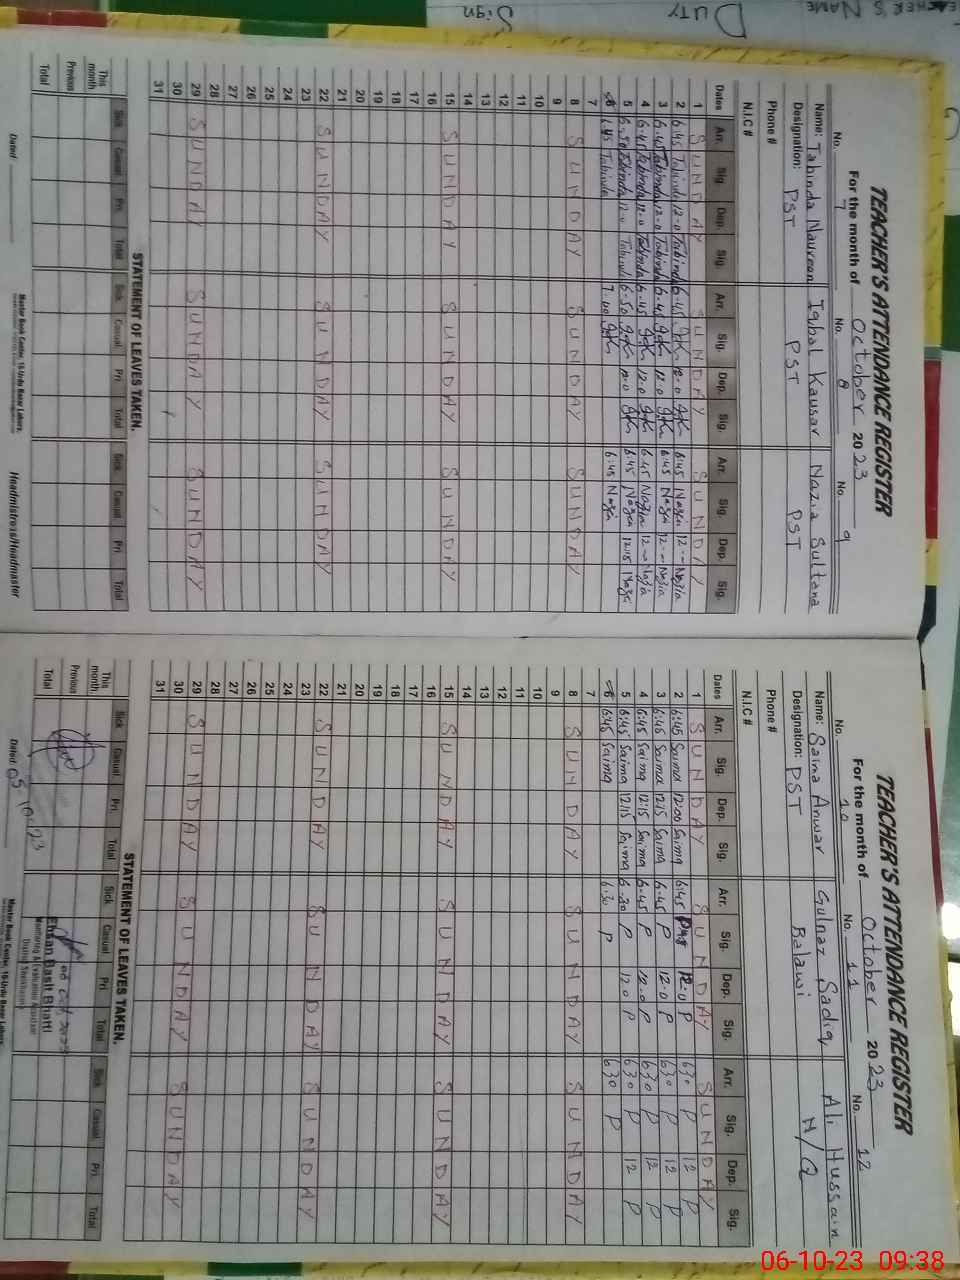 TEACHER'S NAME
DUTY
Sign
TEACHER'S ATTENDANCE REGISTER
For the month of October 2023
No. 7 No. 8 No. 9
Name: Tabinda Naureen Iqbal Kausar Nazia Sultana
Designation: PST PST PST
Phone #
N.I.C #
Dates Arr. Sig. Dep. Sig. Arr. Sig. Dep. Sig. Arr. Sig. Dep. Sig.
1 SUNDAY SUNDAY SUNDAY
2 6:45 Tabinda 12-0 Tabinda 6-45 12-0 6:45 Nazia 12-- Nazia
3 6:45 Tabinda 12-0 Tabinda 6-45 12-0 6:45 Nazia 12-- Nazia
4 6:45 Tabinda 12-0 Tabinda 6-45 12-0 6:45 Nazia 12-- Nazia
5 6:50 Tabinda 12-0 Tabinda 6-50 12-0 6:45 Nazia 12:15 Nazia
6 6:45 Tabinda 7.00 6:45 Nazia
7
8 SUNDAY SUNDAY SUNDAY
9
10
11
12
13
14
15 SUNDAY SUNDAY SUNDAY
16
17
18
19
20
21
22 SUNDAY SUNDAY SUNDAY
23
24
25
26
27
28
29 SUNDAY SUNDAY SUNDAY
30
31
STATEMENT OF LEAVES TAKEN.
This month Sick Casual Pri. Total Sick Casual Pri Total Sick Casual Pri Total
Previous
Total
Dated:
Master Book Center, 16-Urdu Bazar Lahore.
Headmistress/Headmaster
TEACHER'S ATTENDANCE REGISTER
For the month of October 2023
No. 10 No. 11 No. 12
Name: Saima Anwar Gulnaz Sadiq Ali Hussain
Designation: PST Balawi N/Q
Phone #
N.I.C #
Dates Arr. Sig. Dep. Sig. Arr. Sig. Dep. Sig. Arr. Sig. Dep. Sig.
1 SUNDAY SUNDAY SUNDAY
2 6:45 Saima 12:00 Saima 6:45 12.0 P 630 P 12 P
3 6:45 Saima 12:15 Saima 6-45 P 12-0 P 630 P 12 P
4 6:45 Saima 12:15 Saima 6-45 P 12.0 P 630 P 12 P
5 6:45 Saima 12:15 Saima 6.30 P 12.0 P 630 P 12 P
6 6:45 Saima 6:30 P 630 P
7
8 SUNDAY SUNDAY SUNDAY
9
10
11
12
13
14
15 SUNDAY SUNDAY SUNDAY
16
17
18
19
20
21
22 SUNDAY SUNDAY SUNDAY
23
24
25
26
27
28
29 SUNDAY SUNDAY SUNDAY
30
31
STATEMENT OF LEAVES TAKEN.
This month Sick Casual Pri. Total Sick Casual Pri Total Sick Casual Pri. Total
Previous
Total
Dated: 05-10-23
06 Oct 2023
Ehsan Basit Bhatti
Monitoring & Evaluation Assistant
District Sheikhupura
Master Book Center, 16-Urdu Bazar Lahore.
06-10-23 09:38